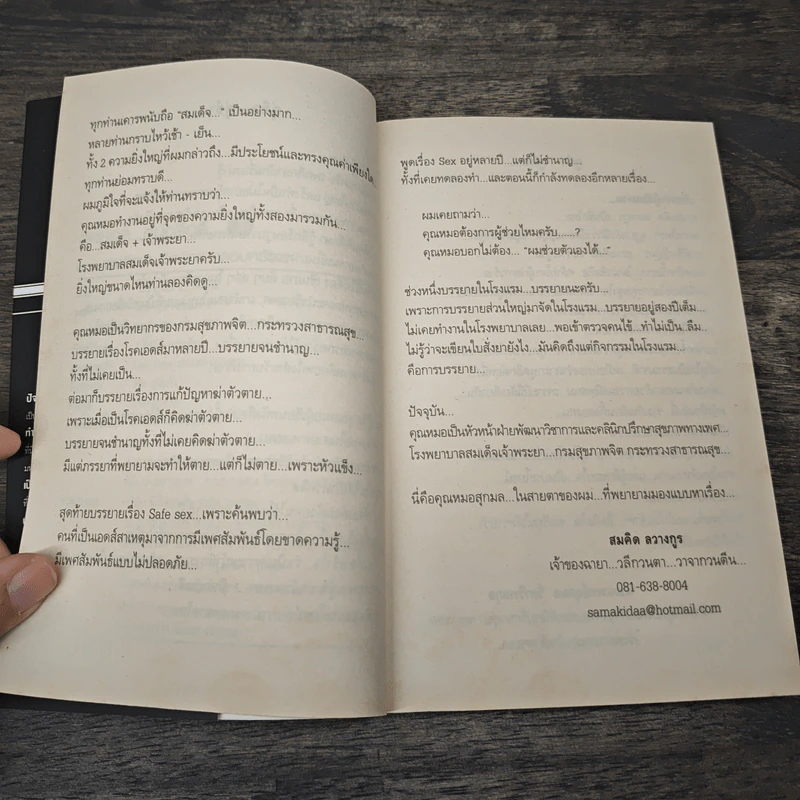 ทุกท่านเคารพนับถือ "สมเด็จ..." เป็นอย่างมาก...
หลายท่านกราบไหว้เช้า - เย็น...
ทั้ง 2 ความยิ่งใหญ่ที่ผมกล่าวถึง...มีประโยชน์และทรงคุณค่าเพียงใด
ทุกท่านย่อมทราบดี...
ผมภูมิใจที่จะแจ้งให้ท่านทราบว่า...
คุณหมอทำงานอยู่ที่จุดของความยิ่งใหญ่ทั้งสองมารวมกัน...
คือ...สมเด็จ + เจ้าพระยา...
โรงพยาบาลสมเด็จเจ้าพระยาครับ...
ยิ่งใหญ่ขนาดไหนท่านลองคิดดู...
คุณหมอเป็นวิทยากรของกรมสุขภาพจิต...กระทรวงสาธารณสุข...
บรรยายเรื่องโรคเอดส์มาหลายปี...บรรยายจนชำนาญ...
ทั้งที่ไม่เคยเป็น...
ต่อมาก็บรรยายเรื่องการแก้ปัญหาฆ่าตัวตาย...
เพราะเมื่อเป็นโรคเอดส์ก็คิดฆ่าตัวตาย...
บรรยายจนชำนาญทั้งที่ไม่เคยคิดฆ่าตัวตาย...
มีแต่ภรรยาที่พยายามจะทำให้ตาย...แต่ก็ไม่ตาย...เพราะหัวแข็ง...
สุดท้ายบรรยายเรื่อง Safe sex...เพราะค้นพบว่า...
คนที่เป็นเอดส์สาเหตุมาจากการมีเพศสัมพันธ์โดยขาดความรู้...
มีเพศสัมพันธ์แบบไม่ปลอดภัย...
พูดเรื่อง Sex อยู่หลายปี...แต่ก็ไม่ชำนาญ...
ทั้งที่เคยทดลองทำ...และตอนนี้ก็กำลังทดลองอีกหลายเรื่อง...
ผมเคยถามว่า...
คุณหมอต้องการผู้ช่วยไหมครับ......?
คุณหมอบอกไม่ต้อง... "ผมช่วยตัวเองได้..."
ช่วงหนึ่งบรรยายในโรงแรม...บรรยายนะครับ...
เพราะการบรรยายส่วนใหญ่มาจัดในโรงแรม...บรรยายอยู่สองปีเต็ม...
ไม่เคยทำงานในโรงพยาบาลเลย...พอเข้าตรวจคนไข้...ทำไม่เป็น..ลืม..
ไม่รู้ว่าจะเขียนใบสั่งยายังไง...มันคิดถึงแต่กิจกรรมในโรงแรม...
คือการบรรยาย...
ปัจจุบัน...
คุณหมอเป็นหัวหน้าฝ่ายพัฒนาวิชาการและคลินิกปรึกษาสุขภาพทางเพศ...
โรงพยาบาลสมเด็จเจ้าพระยา...กรมสุขภาพจิต กระทรวงสาธารณสุข...
นี่คือคุณหมอสุกมล...ในสายตาของผม...ที่พยายามมองแบบหาเรื่อง...
สมคิด ลวางกูร
เจ้าของฉายา...วลีกวนตา...วาจากวนตีน...
081-638-8004
samakidaa@hotmail.com